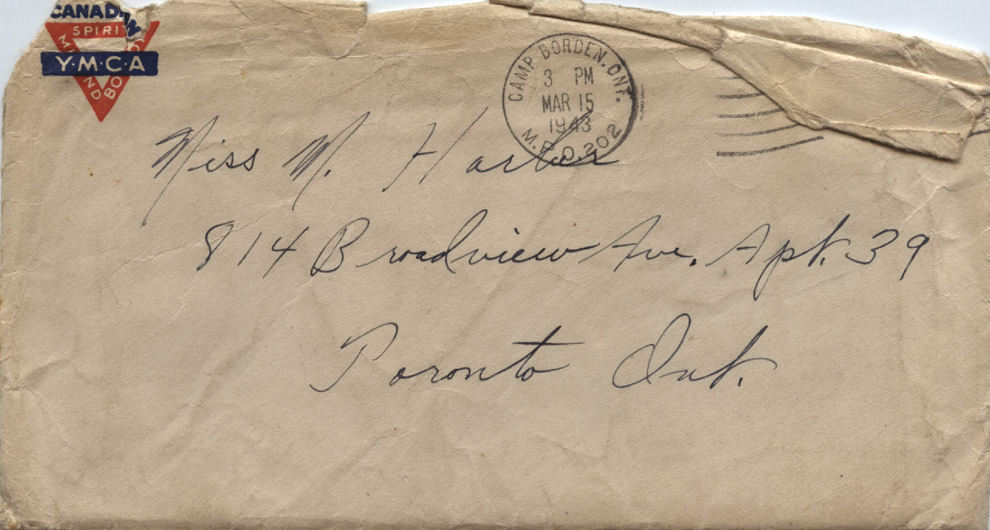 CANADIAN
SPIRIT
MIND
BODY
Y·M·C·A
CAMP BORDEN, ONT.
3 PM
MAR 15
1943
M.P.O. 202
Miss M.
814 Broadview Ave. Apt. 39
Toronto Ont.